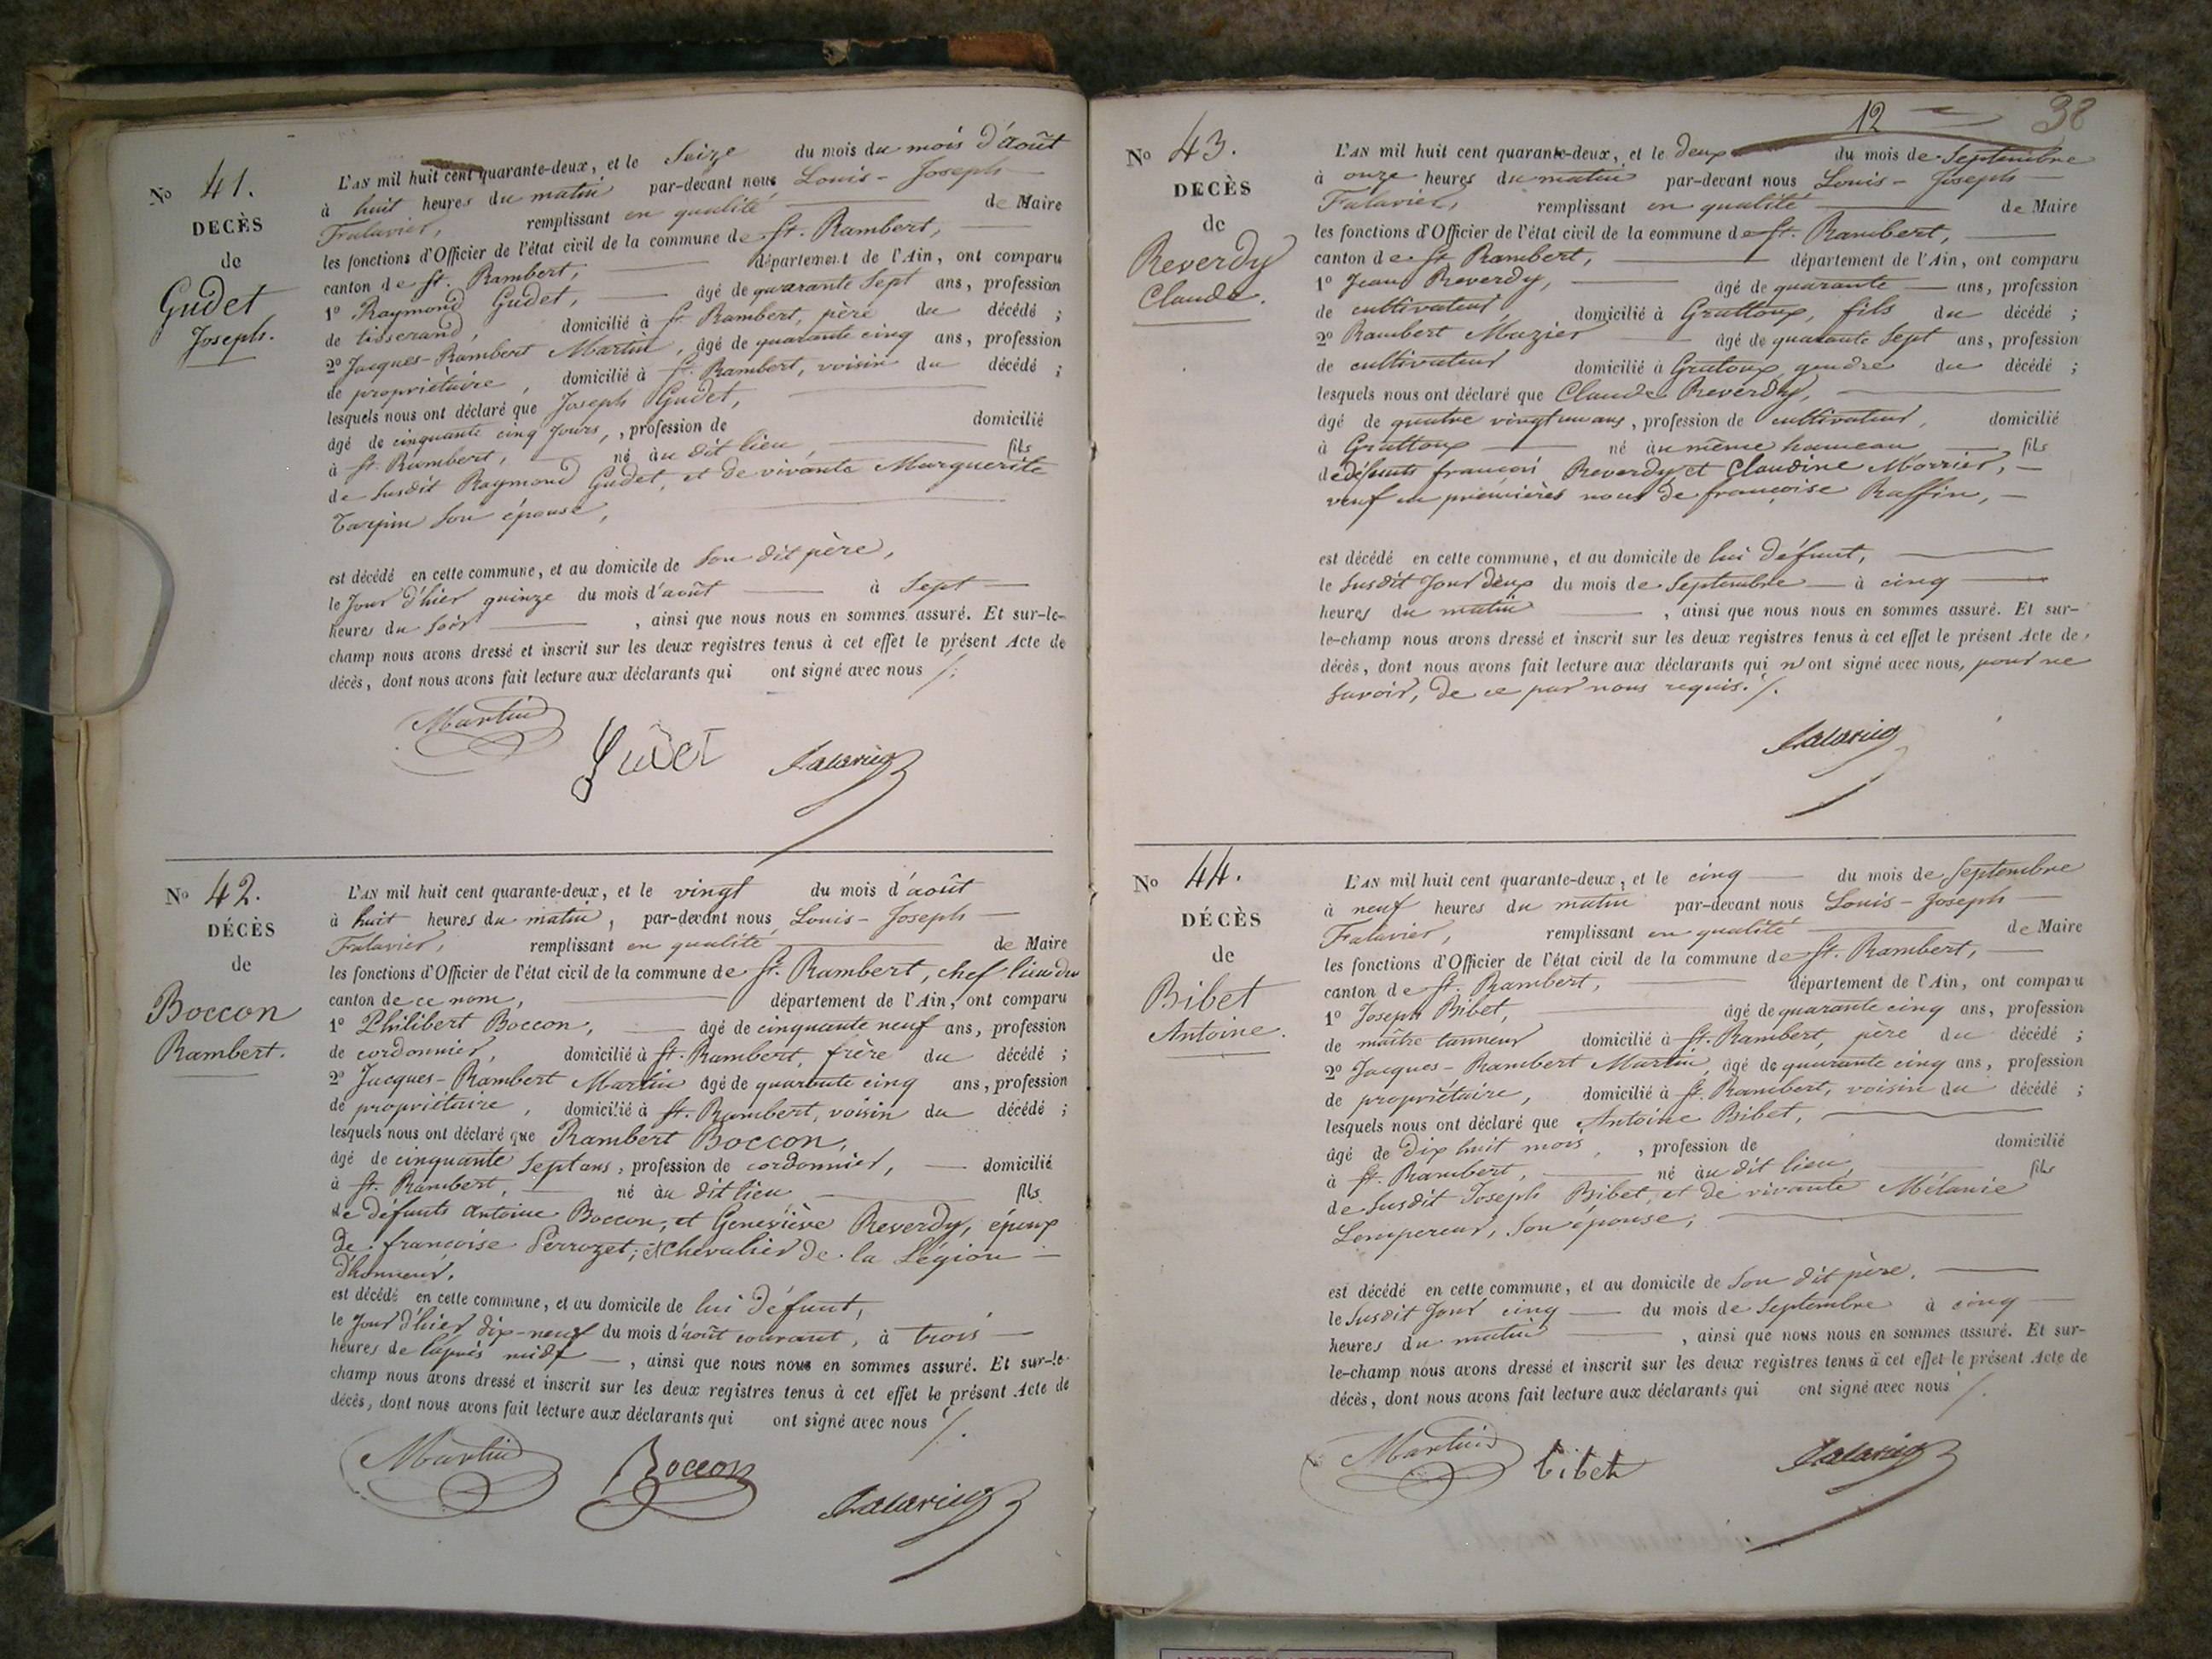 No 41.
DECÈS
de
Gudet
Joseph.
L'AN mil huit cent quarante-deux, et le Seize du mois du mois d'août
à huit heures du matin par-devant nous Louis-Joseph
Falavier, remplissant en qualité de Maire
les fonctions d'Officier de l'état civil de la commune de St. Rambert,
canton de St. Rambert, département de l'Ain, ont comparu
1º Raymond Gudet, âgé de quarante Sept ans, profession
de tisserand, domicilié à St. Rambert, père du décédé ;
2º Jacques-Rambert Martin, âgé de quarante cinq ans, profession
de propriétaire, domicilié à St. Rambert, voisin du décédé ;
lesquels nous ont déclaré que Joseph Gudet,
âgé de cinquante cinq Jours, , profession de domicilié
à St. Rambert, né au dit lieu, fils
de Susdit Raymond Gudet, et de vivante Marguerite
Tarpin son épouse,
est décédé en cette commune, et au domicile de Son dit père,
le Jour d'hier quinze du mois d'août à Sept
heures du Soir , ainsi que nous nous en sommes assuré. Et sur-le-
champ nous avons dressé et inscrit sur les deux registres tenus à cet effet le présent Acte de
décès, dont nous avons fait lecture aux déclarants qui ont signé avec nous /.
Martin
Gudet
Falavier
No 42.
DÉCÈS
de
Boccon
Rambert.
L'AN mil huit cent quarante-deux, et le vingt du mois d'août
à huit heures du matin, par-devant nous Louis-Joseph
Falavier, remplissant en qualité de Maire
les fonctions d'Officier de l'état civil de la commune de St. Rambert, chef lieu du
canton de ce nom, département de l'Ain, ont comparu
1º Philibert Boccon, âgé de cinquante neuf ans, profession
de cordonnier, domicilié à St. Rambert, frère du décédé ;
2º Jacques-Rambert Martin âgé de quarante cinq ans, profession
de propriétaire, domicilié à St. Rambert, voisin du décédé ;
lesquels nous ont déclaré que Rambert Boccon,
âgé de cinquante Sept ans, profession de cordonnier, domicilié
à St. Rambert, né au dit lieu fils
de défunts Antoine Boccon, et Geneviève Reverdy, époux
de françoise Perrozet; et chevalier de la Légion
d'honneur.
est décédé en cette commune, et au domicile de lui défunt,
le Jour d'hier dix-neuf du mois d'août courant, à trois
heures de l'après midi , ainsi que nous nous en sommes assuré. Et sur-le-
champ nous avons dressé et inscrit sur les deux registres tenus à cet effet le présent Acte de
décès, dont nous avons fait lecture aux déclarants qui ont signé avec nous /.
Martin
Boccon
Falavier
12
38
No 43.
DECÈS
de
Reverdy
Claude.
L'AN mil huit cent quarante-deux, et le deux du mois de Septembre
à onze heures du matin par-devant nous Louis-Joseph
Falavier, remplissant en qualité de Maire
les fonctions d'Officier de l'état civil de la commune de St. Rambert,
canton de St. Rambert, département de l'Ain, ont comparu
1º Jean Reverdy, âgé de quarante ans, profession
de cultivateur, domicilié à Grattoux, fils du décédé ;
2º Rambert Mazier âgé de quarante Sept ans, profession
de cultivateur domicilié à Gratoux, gendre du décédé ;
lesquels nous ont déclaré que Claude Reverdy,
âgé de quatre vingt un ans, profession de cultivateur, domicilié
à Grattoux né au même hameau fils
de défunts françois Reverdy, et Claudine Morrier,
veuf en premières noces de françoise Raffin,
est décédé en cette commune, et au domicile de lui défunt,
le Susdit Jour deux du mois de Septembre à cinq
heures du matin , ainsi que nous nous en sommes assuré. Et sur-
le-champ nous avons dressé et inscrit sur les deux registres tenus à cet effet le présent Acte de
décès, dont nous avons fait lecture aux déclarants qui n'ont signé avec nous, pour ne
savoir, de ce par nous requis. /.
Falavier
No 44.
DÉCÈS
de
Bibet
Antoine.
L'AN mil huit cent quarante-deux, et le cinq du mois de Septembre
à neuf heures du matin par-devant nous Louis-Joseph
Falavier, remplissant en qualité de Maire
les fonctions d'Officier de l'état civil de la commune de St. Rambert,
canton de St. Rambert, département de l'Ain, ont comparu
1º Joseph Bibet, âgé de quarante cinq ans, profession
de maître tanneur domicilié à St. Rambert, père du décédé ;
2º Jacques-Rambert Martin, âgé de quarante cinq ans, profession
de propriétaire, domicilié à St. Rambert, voisin du décédé ;
lesquels nous ont déclaré que Antoine Bibet,
âgé de dix huit mois, , profession de domicilié
à St. Rambert, né au dit lieu, fils
de Susdit Joseph Bibet, et de vivante Mélanie
Lempereur, son épouse,
est décédé en cette commune, et au domicile de Son dit père,
le Susdit Jour cinq du mois de Septembre à cinq
heures du matin , ainsi que nous nous en sommes assuré. Et sur-
le-champ nous avons dressé et inscrit sur les deux registres tenus à cet effet le présent Acte de
décès, dont nous avons fait lecture aux déclarants qui ont signé avec nous /.
Martin
bibet
Falavier